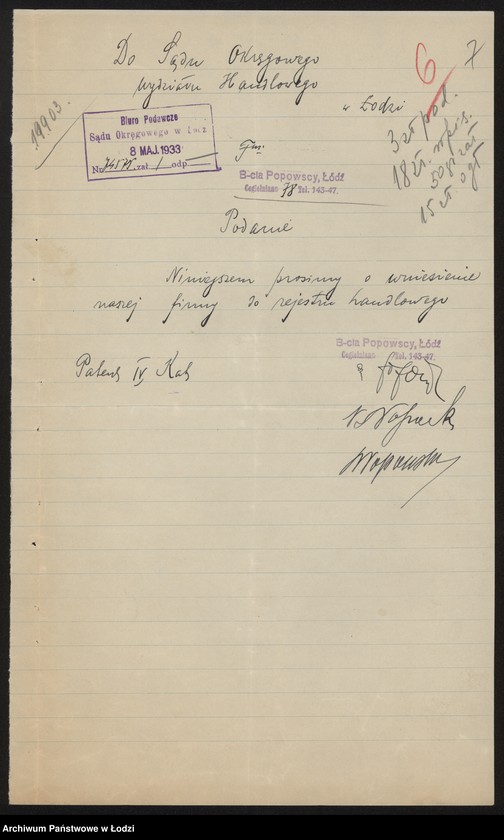 6 7
Do Sądu Okręgowego
Wydziału Handlowego
w Łodzi
19903.
3 zł pod.
18 zł. wpis.
50 gr zał
15 zł ogł
Biuro Podawcze
Sądu Okręgowego w Łodzi
8 MAJ. 1933
Nr zał 1 odp
Fmy
B-cia Popowscy, Łódź
Cegielniana 78 Tel. 143-47.
Podanie
Niniejszem prosimy o wniesienie
naszej firmy do rejestru handlowego
B-cia Popowscy, Łódź
Cegielniana Tel. 143-47.
Patent IV Kat
Archiwum Państwowe w Łodzi